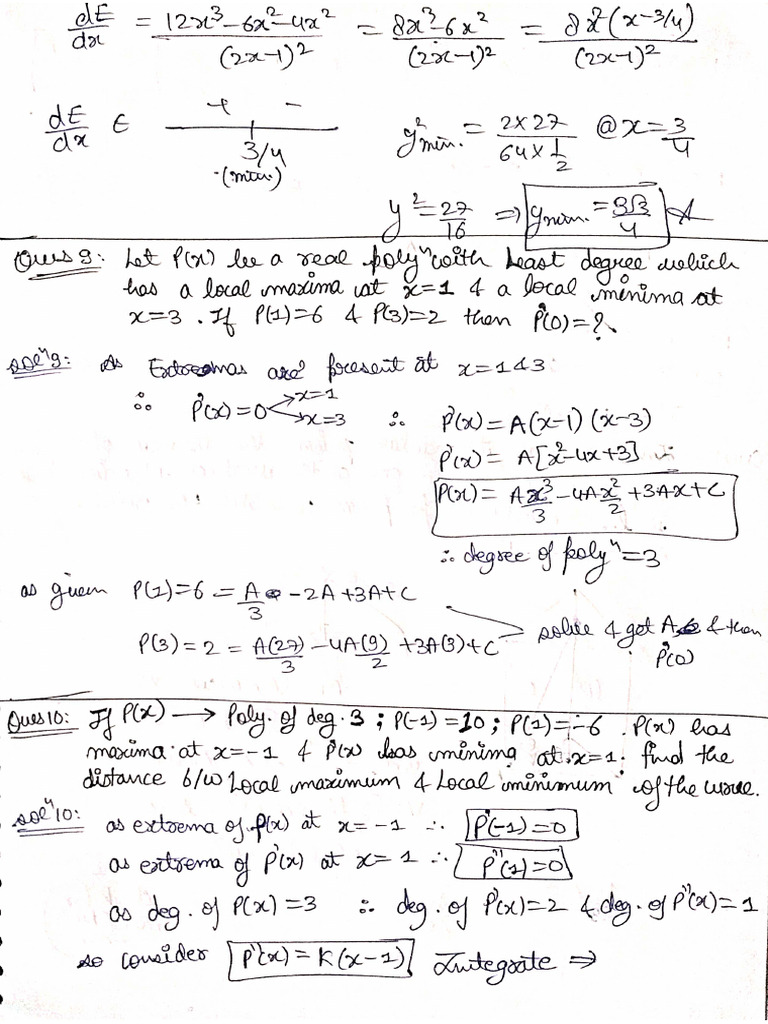 dE/dx = 12x³-6x²-4x²/(2x-1)² = 8x³-6x²/(2x-1)² = 8x²(x-3/4)/(2x-1)²
dE/dx ∈ + - 3/4 (min.) y²min. = 2x27/64x1/2 @x=3/4
y²=27/16 ⇒ ymin. = 3√3/4 A
Ques 9: Let P(x) be a real polyⁿ with least degree which
has a local maxima at x=1 & a local minima at
x=3. If P(1)=6 & P(3)=2 then P'(0)=?
solⁿ9: As Extremas are present at x=1&3
∴ P'(x)=0 x=1 x=3 ∴ P'(x) = A(x-1)(x-3)
P'(x) = A[x²-4x+3]
P(x) = Ax³/3 - 4Ax²/2 + 3Ax+C
∴ degree of polyⁿ=3
as given P(1)=6 = A/3 - 2A + 3A + C
P(3) = 2 = A(27)/3 - 4A(9)/2 + 3A(3)+C solve & get A & then P'(0)
Ques 10: If P(x) → Poly. of deg. 3 ; P(-1)=10 ; P(1)=-6 . P(x) has
maxima at x=-1 & P'(x) has minima at x=1. find the
distance b/w Local maximum & Local minimum of the curve.
solⁿ10: as extrema of P(x) at x=-1 ∴ P'(-1)=0
as extrema of P'(x) at x=1 ∴ P''(1)=0
as deg. of P(x)=3 ∴ deg. of P'(x)=2 & deg. of P''(x)=1
so consider P''(x)=K(x-1) Integrate ⇒